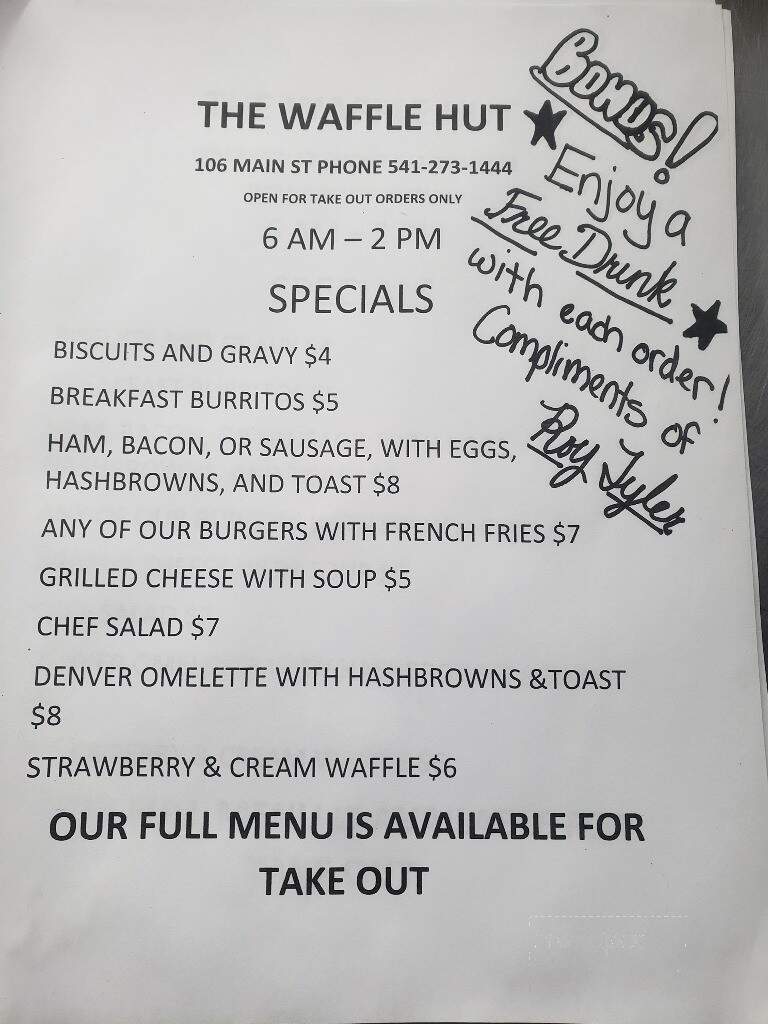 THE WAFFLE HUT
106 MAIN ST PHONE 541-273-1444
OPEN FOR TAKE OUT ORDERS ONLY
6 AM – 2 PM
SPECIALS
BISCUITS AND GRAVY $4
BREAKFAST BURRITOS $5
HAM, BACON, OR SAUSAGE, WITH EGGS,
HASHBROWNS, AND TOAST $8
ANY OF OUR BURGERS WITH FRENCH FRIES $7
GRILLED CHEESE WITH SOUP $5
CHEF SALAD $7
DENVER OMELETTE WITH HASHBROWNS &TOAST
$8
STRAWBERRY & CREAM WAFFLE $6
OUR FULL MENU IS AVAILABLE FOR
TAKE OUT
BONUS!
Enjoy a
Free Drink
with each order!
Compliments of
Roy Tyler